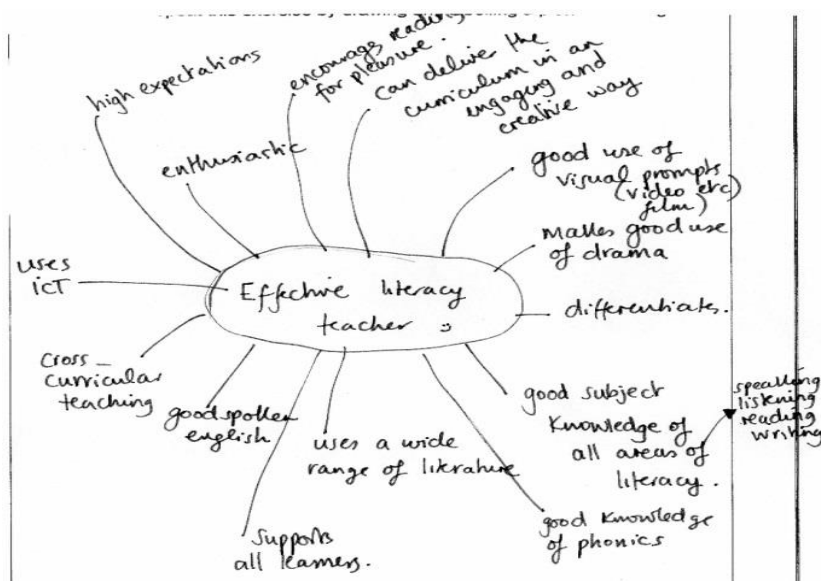 high expectations
enthusiastic
encourage reading
for pleasure.
can deliver the
curriculum in an
engaging and
creative way
good use of
visual prompts
(video etc
film)
makes good use
of drama
differentiates.
good subject
knowledge of
all areas of
literacy.
speaking
listening
reading
writing
good knowledge
of phonics
uses a wide
range of literature
supports
all learners.
good spoken
english
cross-
curricular
teaching
uses
icT
Effective literacy
teacher